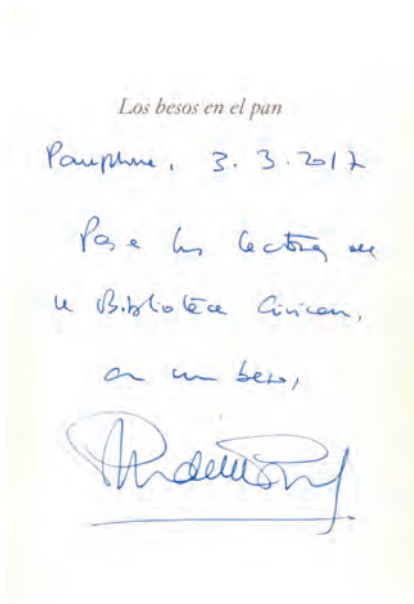 Los besos en el pan
Pamplona, 3.3.2017
Para los lectores de
la Biblioteca Civican,
con un beso,